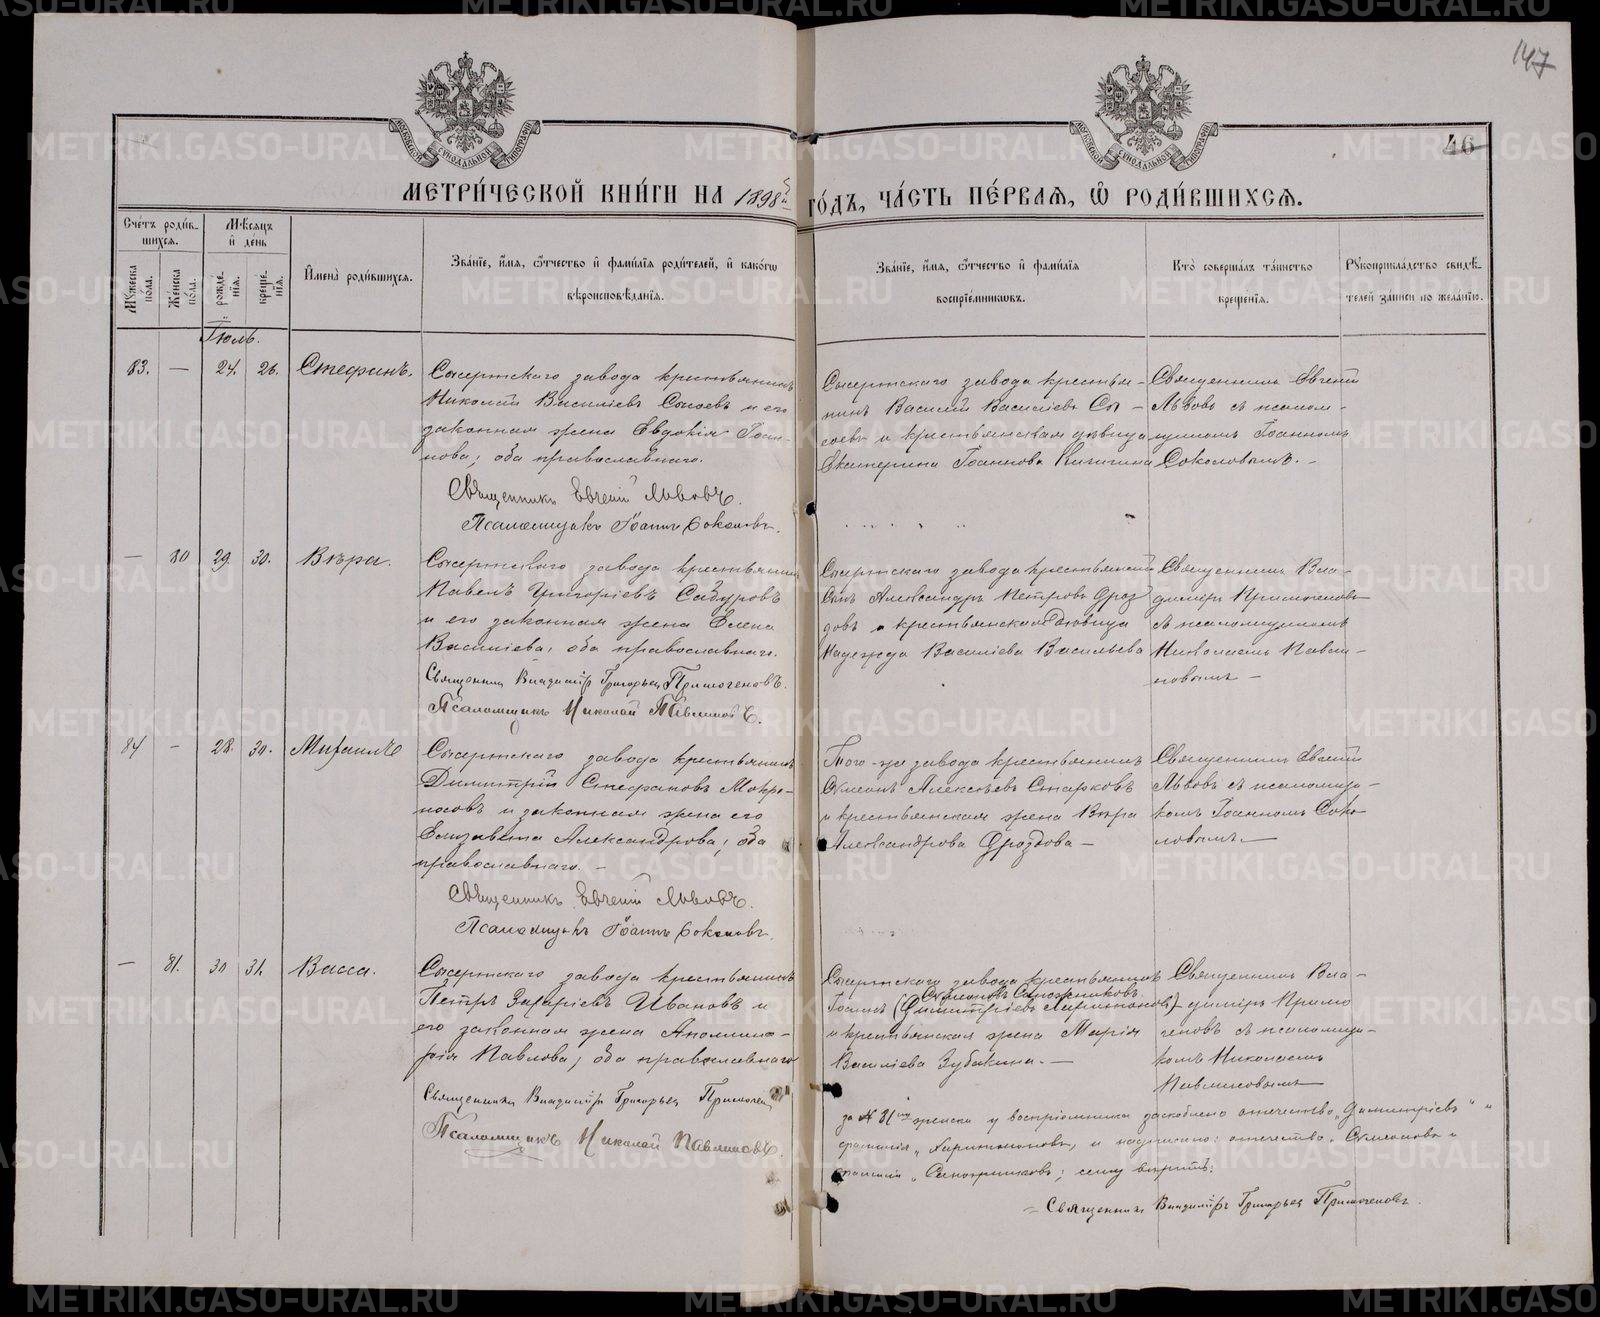 147
46
МЕТРИ́ЧЕСКОЙ КНИ́ГИ НА 1898й ГО́ДЪ, ЧА́СТЬ ПЕ́РВАЯ, Ѡ РОДИ́ВШИХСЯ.
Сче́тъ роди́в-
шихся.
Му́жеска по́ла.
Же́нска по́ла.
Мѣ́сяцъ и де́нь
рожде́-нія.
креще́-нія.
Имена̀ роди́вшихся.
Зва́ніе, и́мя, о́тчество и фами́лія роди́телей, и како́гѡ
вѣроисповѣ́данія.
Зва́ніе, и́мя, о́тчество и фами́лія
воспріе́мниковъ.
Кто̀ соверша́лъ та́инство
креще́нія.
Рукоприкла́дство свидѣ́-
телей за́писи по жела́нію.
Іюль.
83. — 24. 26. Стефанъ.
Сысертскаго завода крестьянинъ
Николай Василіевъ Сысоевъ и его
законная жена Евдокія Іоан-
нова; оба православнаго.
Священникъ Евгеній Львовъ.
Псаломщикъ Іоаннъ Соколовъ.
Сысертскаго завода крестья-
нинъ Василій Василіевъ Сы-
соевъ и крестьянская дѣвица
Екатерина Іоаннова
Священникъ Евгеній
Львовъ съ псалом-
щикомъ Іоанномъ
Соколовымъ. —
— 80 29. 30. Вѣра.
Сысертскаго завода крестьянинъ
Павелъ Григоріевъ Сабуровъ
и его законная жена Елена
Василіева, оба православнаго.
Священникъ Владиміръ Григорьев Примогеновъ.
Псаломщикъ Николай Павлиновъ.
Сысертскаго завода крестьянскій
Сынъ Александръ Петровъ Дроз
довъ и крестьянская дѣвица
Надежда Василіева Васильева
Священникъ Вла-
диміръ Примогеновъ
съ псаломщикомъ
Николаемъ Павли-
новымъ —
84 — 28. 30. Михаилъ
Сысертскаго завода крестьянинъ
Димитрій Стефановъ Мокро-
носовъ и законная жена его
Елизавета Александрова; оба
православнаго. —
Священникъ Евгеній Львовъ.
Псаломщикъ Іоаннъ Соколовъ.
Того-же завода крестьянинъ
Симеонъ Алексѣевъ Старковъ
и крестьянская жена Вѣра
Александрова Дроздова —
Священникъ Евгеній
Львовъ съ псаломщи-
комъ Іоанномъ Соко-
ловымъ —
— 81. 30 31. Васса.
Сысертскаго завода крестьянинъ
Петръ Захаріевъ Ивановъ и
его законная жена Аполлина-
рія Павлова; оба православнаго
Священникъ Владиміръ Григорьев Примогенов
Псаломщикъ Николай Павлиновъ.
Сысертскаго завода крестьянинъ
Симеоновъ Сапожниковъ
Іоаннъ (Димитріевъ Харитоновъ) —
и крестьянская жена Марія
Василіева Зубакина. —
Священникъ Вла-
диміръ Примо
геновъ съ псаломщи-
комъ Николаемъ
Павлиновымъ —
за № 81 женска у воспріемника заскоблено отчество „Димитріевъ“ и
фамилія „Харитоновъ, и надписано: отчество „Симеоновъ и
фамилія „Сапожниковъ; сему вѣрить:
— Священникъ Владиміръ Григорьев Примогеновъ.
METRIKI.GASO-URAL.RU